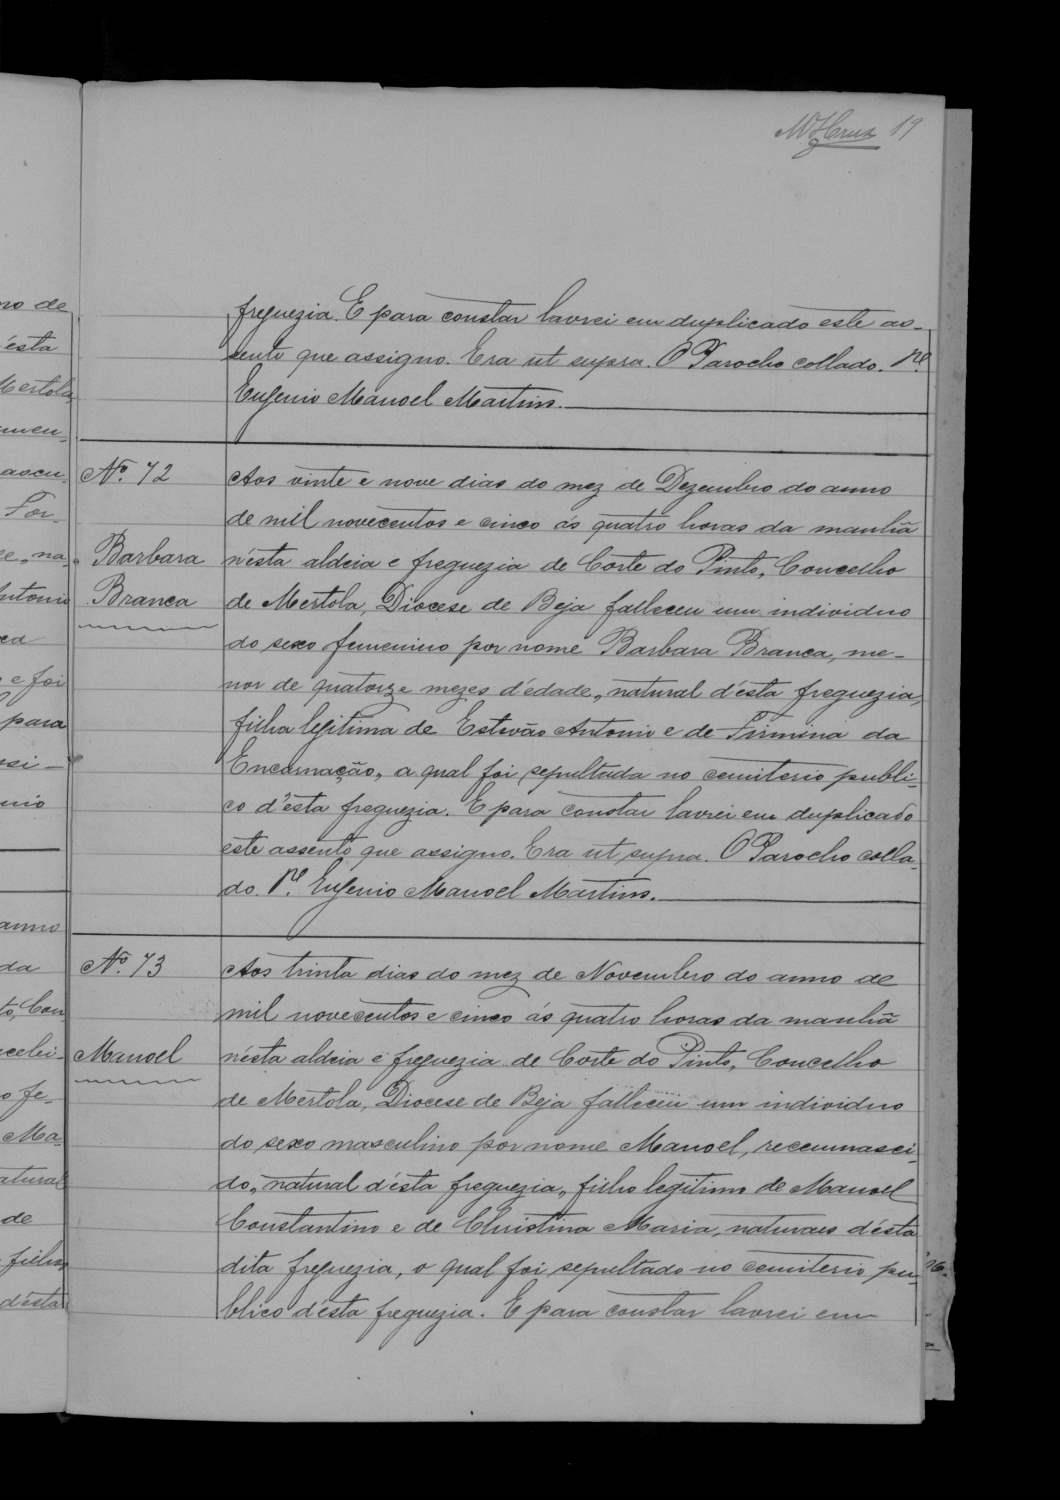 19
freguezia. E para constar lavrei em duplicado este as-
sento que assigno. Era ut supra. O Parocho collado. Pe.
Eugenio Manoel Martins.
Nº. 72
Barbara
Branca
Aos vinte e nove dias do mez de Dezembro do anno
de mil novecentos e cinco ás quatro horas da manhã
n'ésta aldeia e freguezia de Corte do Pinto, Concelho
de Mertola, Diocese de Beja falleceu um individuo
do sexo femenino por nome Barbara Branca, me-
nor de quatorze mezes d'édade, natural d'ésta freguezia,
filha legitima de Estevão Antonio e de Firmina da
Encarnação, a qual foi sepultada no cemiterio publi-
co d'ésta freguezia. E para constar lavrei em duplicado
este assento que assigno. Era ut supra. O Parocho colla-
do. Pe. Eugenio Manoel Martins.
Nº. 73
Manoel
Aos trinta dias do mez de Novembro do anno de
mil novecentos e cinco ás quatro horas da manhã
n'ésta aldeia e freguezia de Corte do Pinto, Concelho
de Mertola, Diocese de Beja falleceu um individuo
do sexo masculino por nome Manoel, recemnasci-
do, natural d'ésta freguezia, filho legitimo de Manoel
Constantino e de Christina Maria, naturaes d'ésta
dita freguezia, o qual foi sepultado no cemiterio pu-
blico d'ésta freguezia. E para constar lavrei em